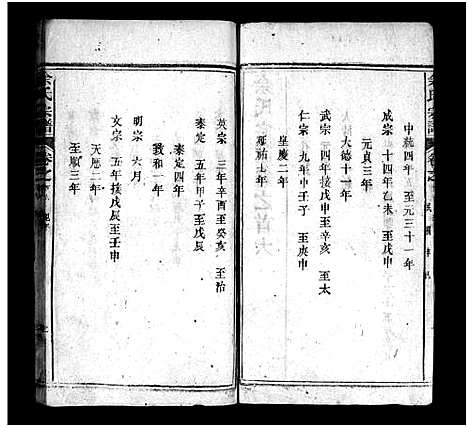 余氏宗譜
卷之
中統四年 至元三十一年
成宗 十四年乙未 至戊申
元貞三年
大德十一年
武宗 四年接戊申至辛亥 至大
仁宗 九年中壬子 至庚申
皇慶二年
延祐七年
英宗 三年辛酉至癸亥 至治
泰定 五年甲子至戊辰
泰定四年
致和一年
明宗 六月
文宗 五年接戊辰至壬申
天厯二年
至順三年
余氏宗譜
卷之